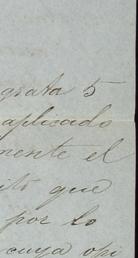 grata 5
aplicado
mente el
que
por lo
cuya opi